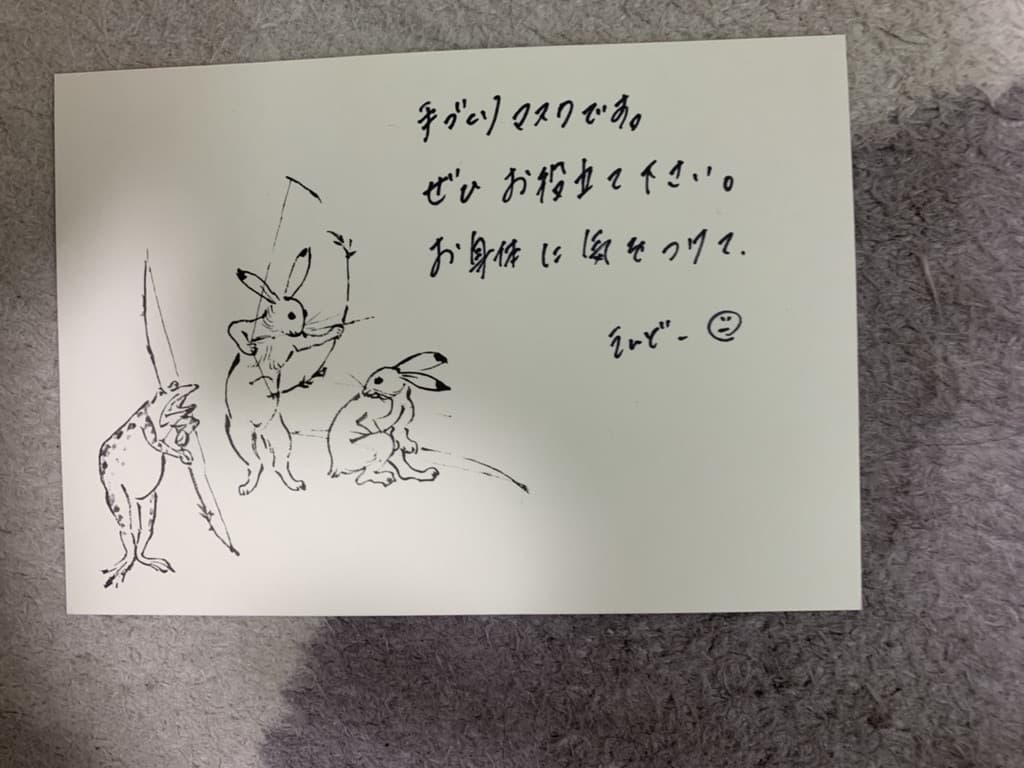 手づくりマスクです。
ぜひ お役立て下さい。
お身体に気をつけて.